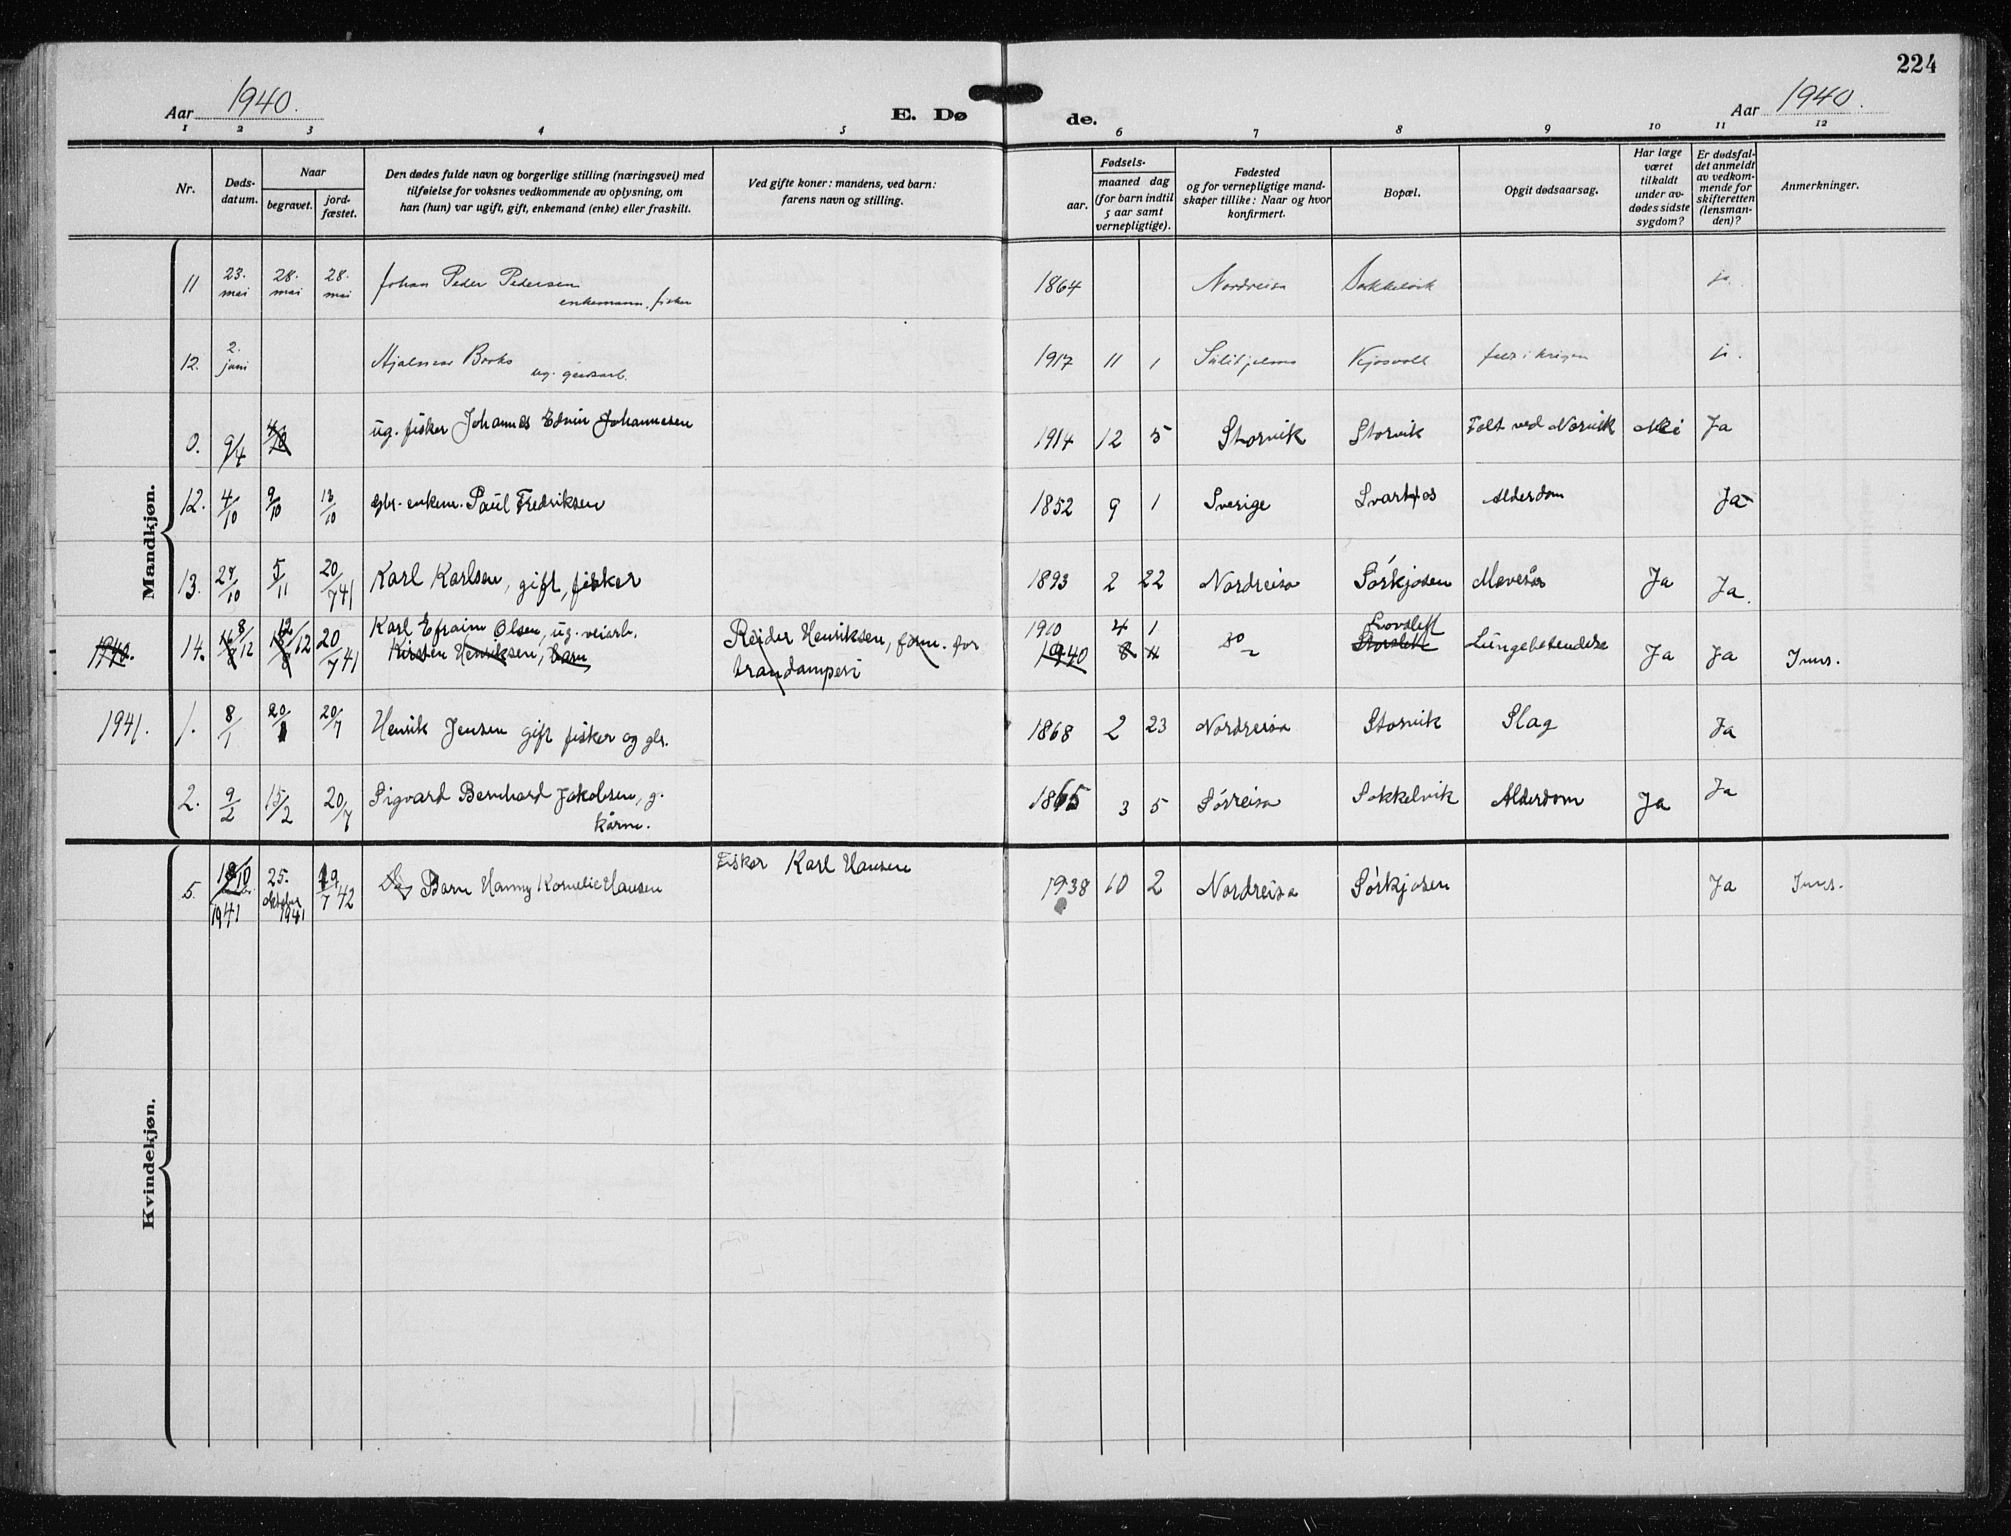 224
Aar 1940.
E. Døde.
Aar 1940.
1 2 3 4 5 6 7 8 9 10 11 12
Nr.
Døds-
datum.
Naar
begravet.
jord-
fæstet.
Den dødes fulde navn og borgerlige stilling (næringsvei) med
tilføielse for voksnes vedkommende av oplysning, om
han (hun) var ugift, gift, enkemand (enke) eller fraskilt.
Ved gifte koner: mandens, ved barn:
farens navn og stilling.
Fødsels-
aar.
maaned dag
(for barn indtil
5 aar samt
vernepligtige).
Fødested
og for vernepligtige mand-
skaper tillike: Naar og hvor
konfirmert.
Bopæl.
Opgit dødsaarsag.
Har læge
været
tilkaldt
under av-
dødes sidste
sygdom?
Er dødsfal-
det anmeldt
av vedkom-
mende for
skifteretten
(lensman-
den)?
Anmerkninger.
Mandkjøn.
11 23. mai 28. mai 28. mai Johan Peder Pedersen 1864 Nordreisa Sokkelvik ja.
enkemann, fisker
12. 2. juni Hjalmar Borks 1917 11 1 Sulitjelma falt i krigen ja.
ug. gårdsarb.
0. 9/4 ug. fisker Johannes Edvin Johannesen 1914 12 5 Storvik Storvik Falt ved Narvik Nei Ja
12. 4/10 9/10 13/10 gbr. enkem. Paul Fredriksen 1852 9 1 Sverige Svartfos Alderdom Ja
13. 27/10 5/11 20/7 41 Karl Karlsen, gift, fisker 1893 2 22 Nordreisa Sørkjosen Mavesår Ja Ja.
14. 8/12 12/12 20/7 41 Karl Efraim Olsen, ug. veiarb. 1910 4 1 Storslett Lungebetendelse Ja Ja Inns.
1940. Kirsten Henriksen, barn Reidar Henriksen, form. for 1940 8 4 Storslett
trandamperi
1941. 1. 8/1 20/1 20/7 Henrik Jensen gift fisker og gbr. 1868 2 23 Nordreisa Storvik Slag Ja
2. 9/2 15/2 20/7 Sigvard Bernhard Jakobsen, g. 1865 3 5 Sørreisa Sokkelvik Alderdom Ja Ja
kårm.
Kvindekjøn.
5. 18/10 1941 25. oktober 1941 19/7 42 Barn Hanny Kornelie Hansen Fisker Karl Hansen 1938 10 2 Nordreisa Sørkjosen Ja Inns.